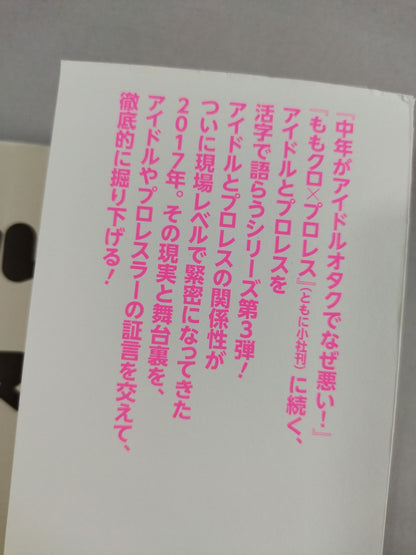 『中年がアイドルオタクでなぜ悪い！』
『ももクロ×プロレス』（ともに小社刊）に続く、
アイドルとプロレスを
活字で語らうシリーズ第3弾！
アイドルとプロレスの関係性が
ついに現場レベルで緊密になってきた
2017年。その現実と舞台裏を、
アイドルやプロレスラーの証言を交えて、
徹底的に掘り下げる！